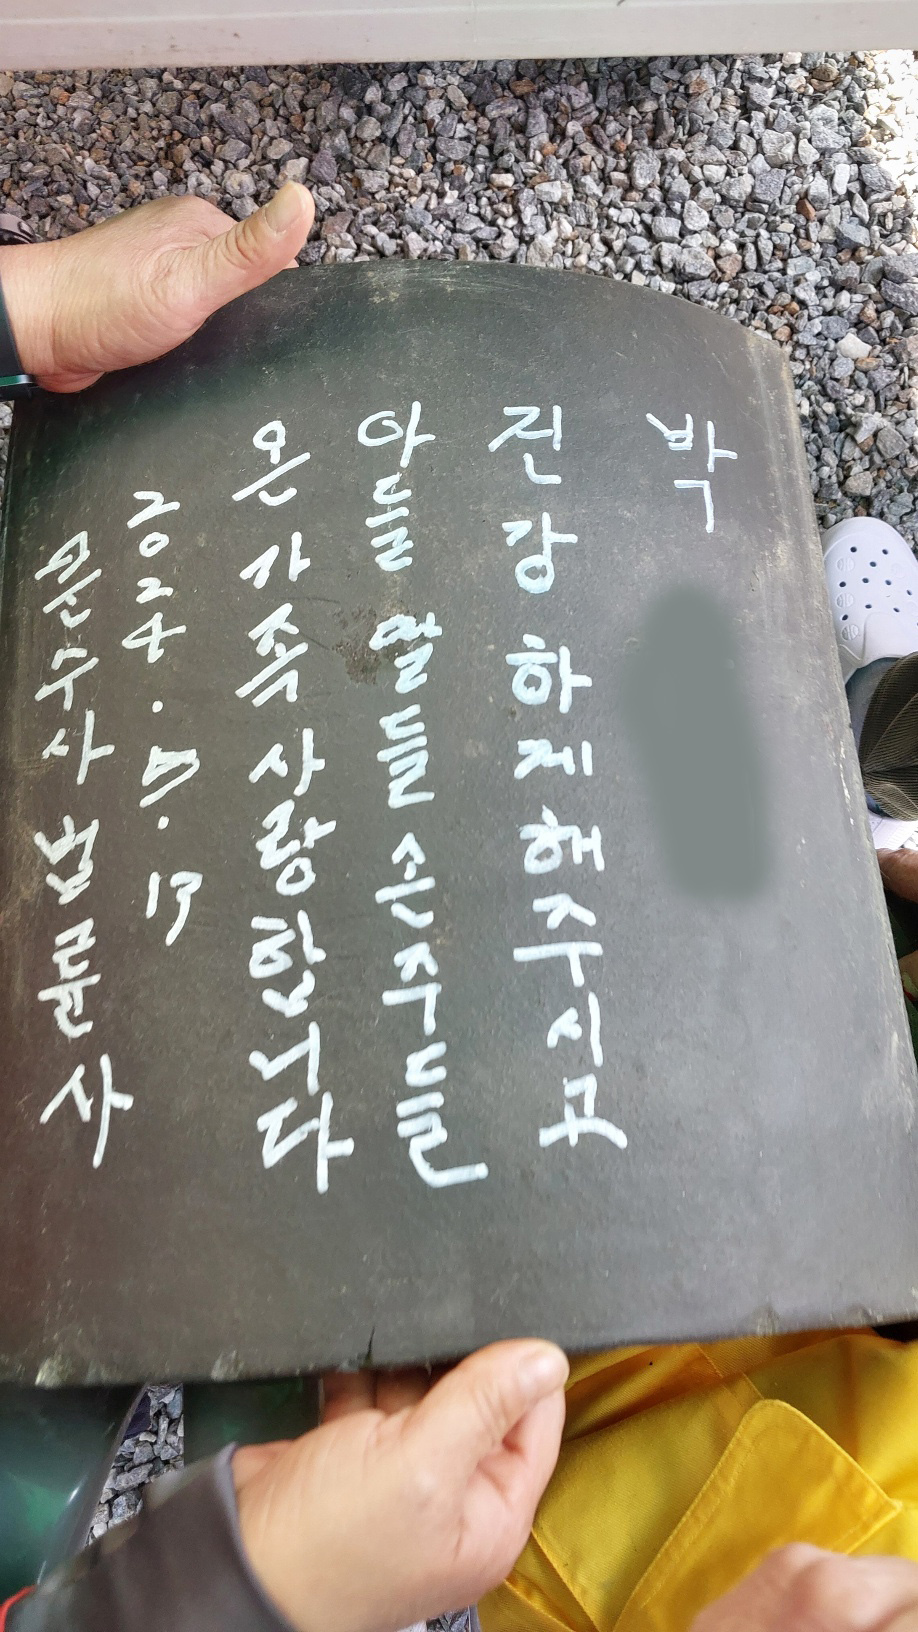 박
진강하게해주시고
아들딸들손주들
온가족사랑합니다
2024.5.19
문수사법륜사